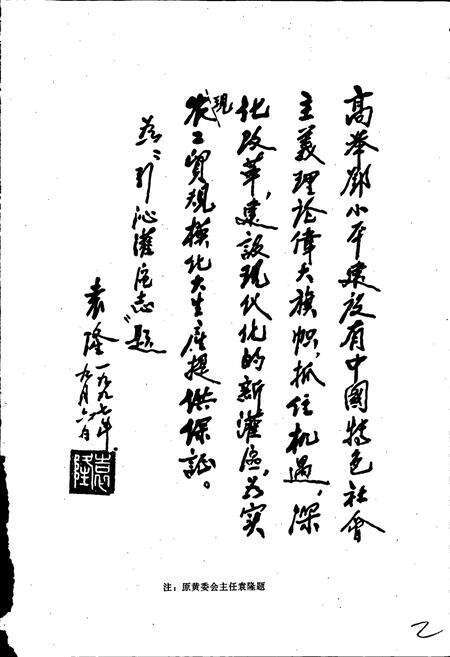 高举鄧小平建设有中國特色社會
主義理论偉大旗帜，抓住机遇，深
化改革，建设现代化的新灌區，为实
现农工貿規模化大生産提供保証。
为“引沁灌区志”题
袁隆
一九九七年
九月六日
袁隆
注：原黄委会主任袁隆题
2